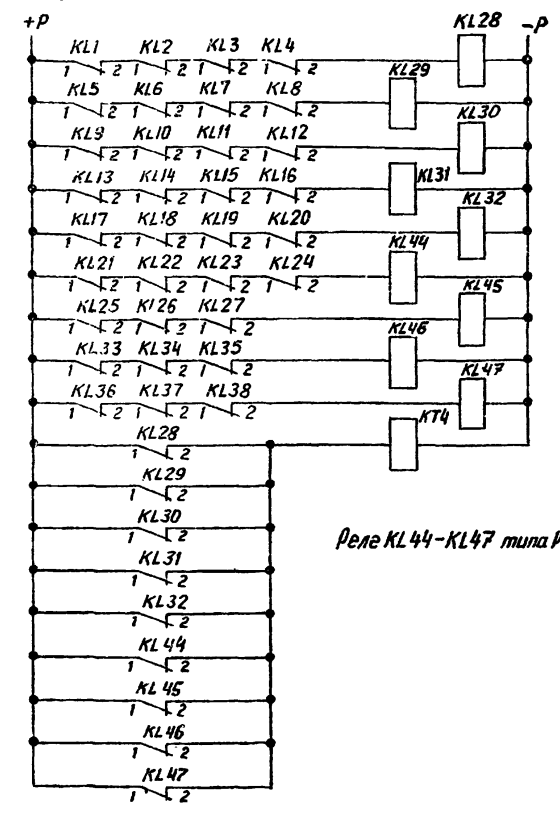 +P KL28 -P
KL1 KL2 KL3 KL4
1 2 1 2 1 2 1 2
KL29
KL5 KL6 KL7 KL8
1 2 1 2 1 2 1 2
KL30
KL9 KL10 KL11 KL12
1 2 1 2 1 2 1 2
KL31
KL13 KL14 KL15 KL16
1 2 1 2 1 2 1 2
KL32
KL17 KL18 KL19 KL20
1 2 1 2 1 2 1 2
KL44
KL21 KL22 KL23 KL24
1 2 1 2 1 2 1 2
KL45
KL25 KL26 KL27
1 2 1 2 1 2
KL46
KL33 KL34 KL35
1 2 1 2 1 2
KL47
KL36 KL37 KL38
1 2 1 2 1 2
KT4
KL28
1 2
KL29
1 2
KL30
1 2
KL31
1 2
KL32
1 2
KL44
1 2
KL45
1 2
KL46
1 2
KL47
1 2
Реле KL44-KL47 типа Р